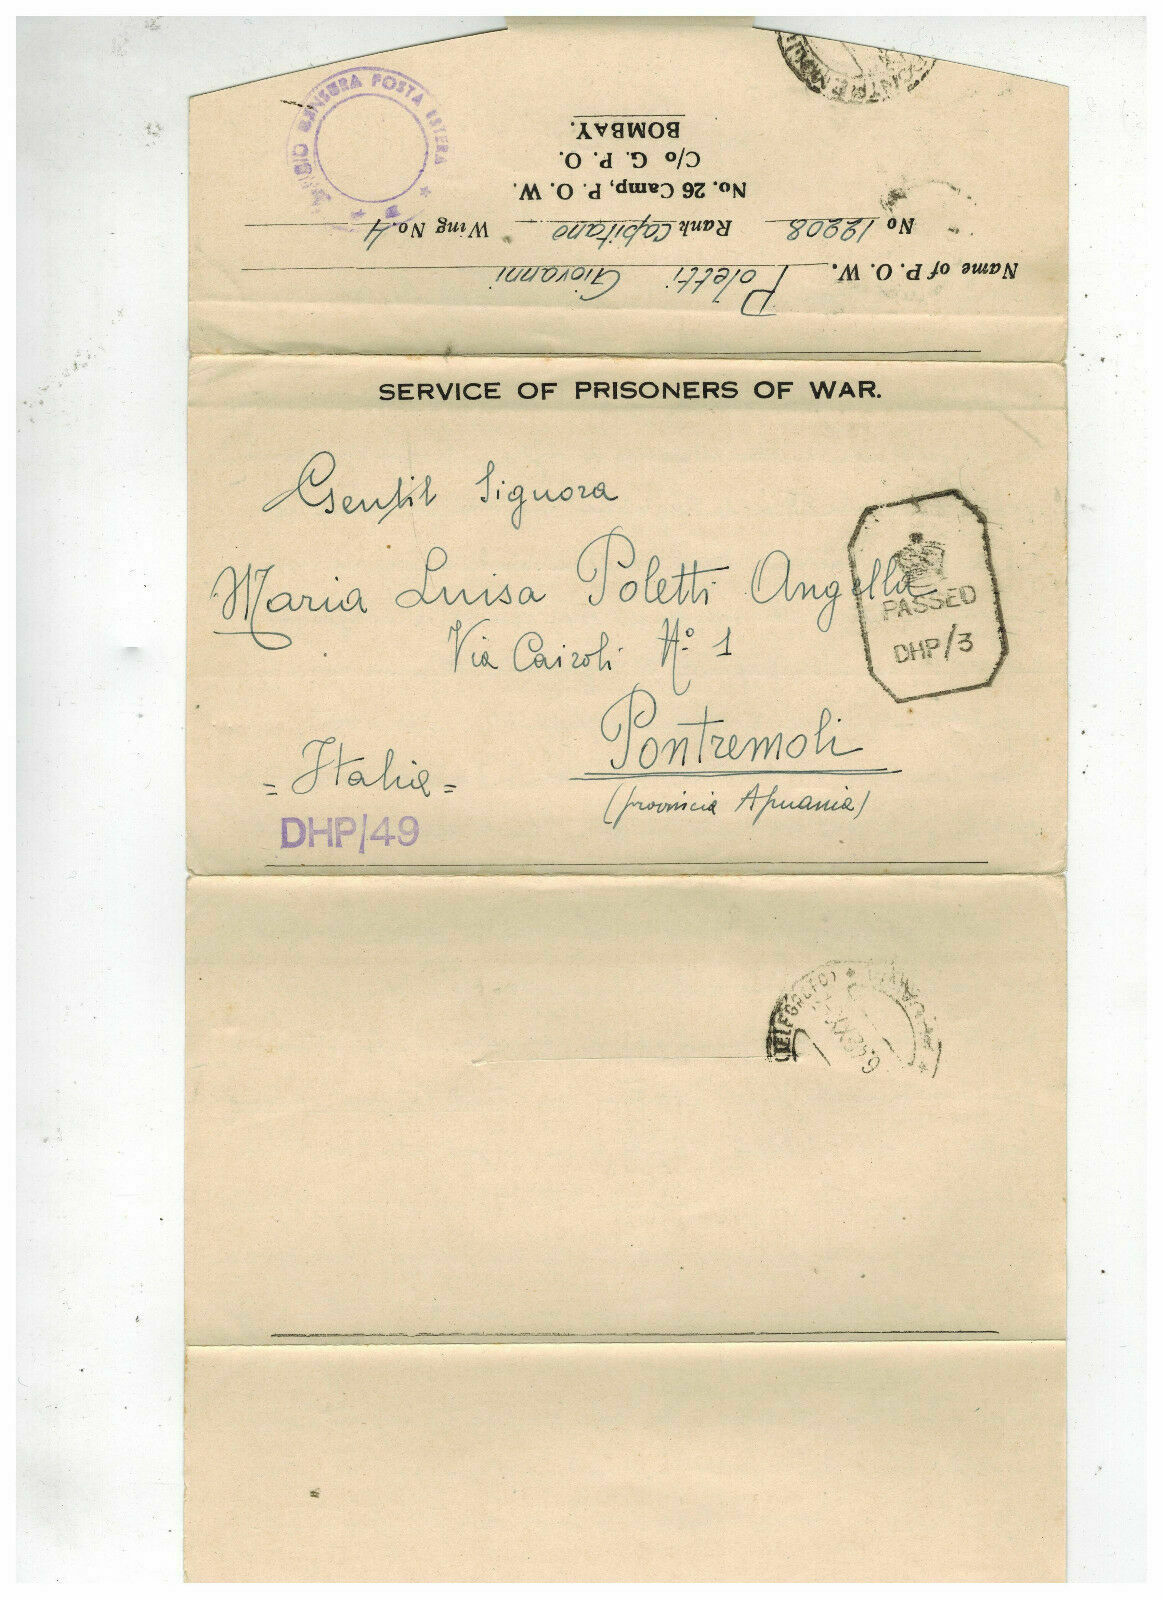 CENSURA POSTA ESTERA
Name of P. O. W. Poletti Giovanni
No 12208 Rank Capitano Wing No. 4
No. 26 Camp, P. O. W.
C/o G. P. O.
BOMBAY.
SERVICE OF PRISONERS OF WAR.
Gentil Signora
Maria Luisa Poletti Angella
Via Cairoli N.o 1
Pontremoli
(provincia Apuania)
= Italia =
PASSED
DHP/3
DHP/49